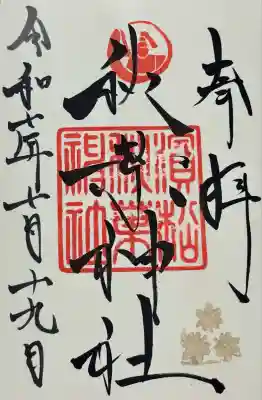 奉拝
秋葉神社
濱松
秋葉
神社
令和六年十月十九日